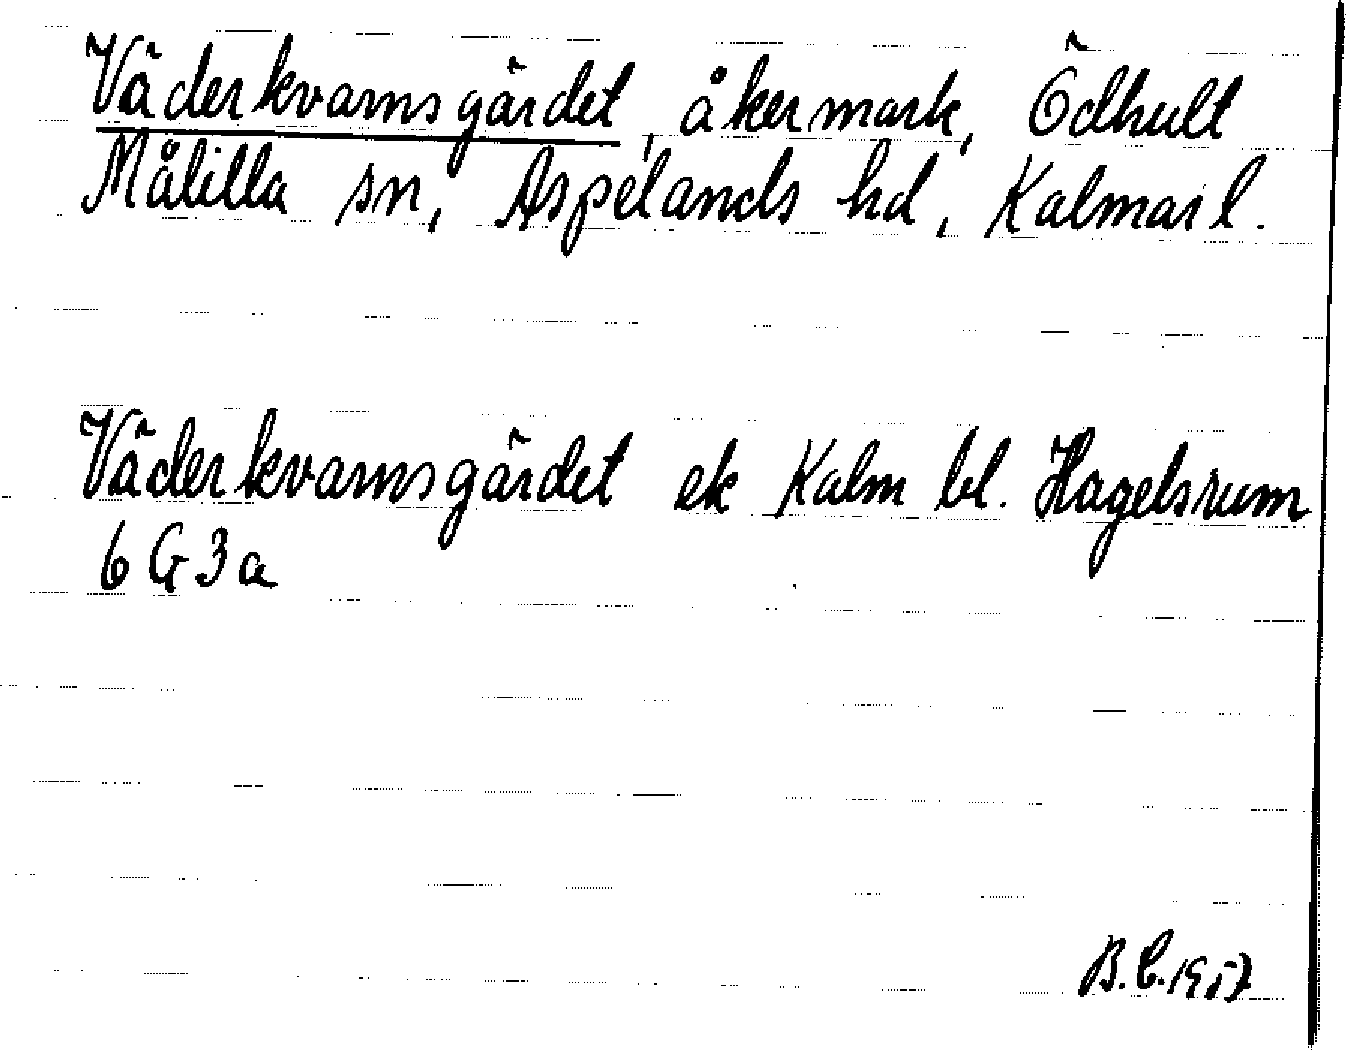 Väderkvarnsgärdet, åkermark, Ödhult
Målilla sn, Aspelands hd, Kalmar l.
Väderkvarnsgärdet ek Kalm bl. Hagelsrum
6 G 3 a
B.C. 1957